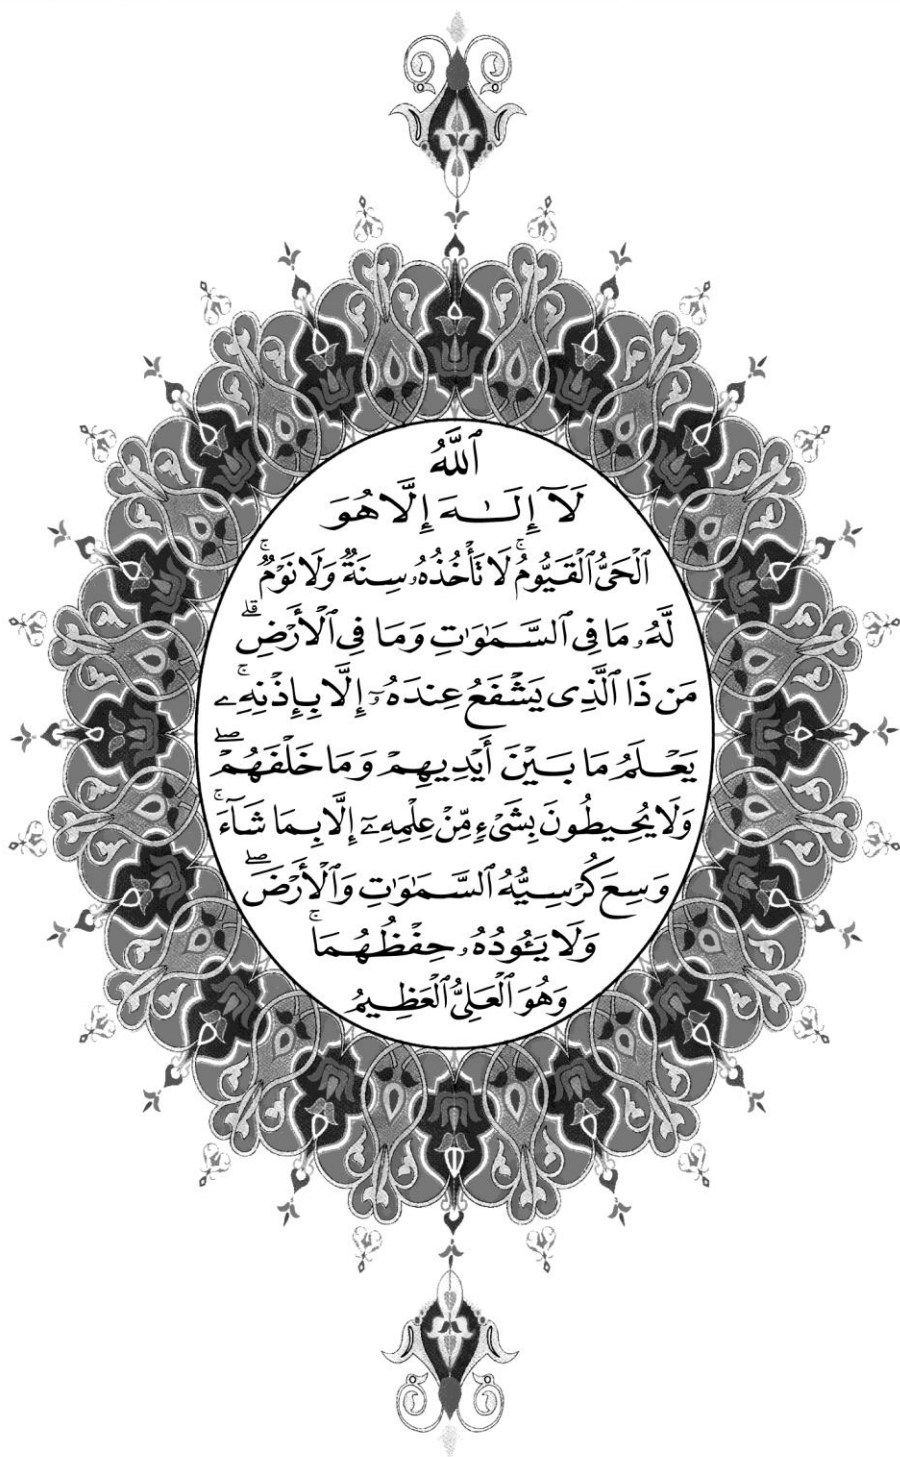 ٱللَّهُ
لَآ إِلَـٰهَ إِلَّا هُوَ
ٱلْحَىُّ ٱلْقَيُّومُ ۚ لَا تَأْخُذُهُۥ سِنَةٌ وَلَا نَوْمٌ ۚ
لَّهُۥ مَا فِى ٱلسَّمَـٰوَٰتِ وَمَا فِى ٱلْأَرْضِ ۗ
مَن ذَا ٱلَّذِى يَشْفَعُ عِندَهُۥٓ إِلَّا بِإِذْنِهِۦ ۚ
يَعْلَمُ مَا بَيْنَ أَيْدِيهِمْ وَمَا خَلْفَهُمْ ۖ
وَلَا يُحِيطُونَ بِشَىْءٍ مِّنْ عِلْمِهِۦٓ إِلَّا بِمَا شَآءَ ۚ
وَسِعَ كُرْسِيُّهُ ٱلسَّمَـٰوَٰتِ وَٱلْأَرْضَ ۖ
وَلَا يَـُٔودُهُۥ حِفْظُهُمَا ۚ
وَهُوَ ٱلْعَلِىُّ ٱلْعَظِيمُ